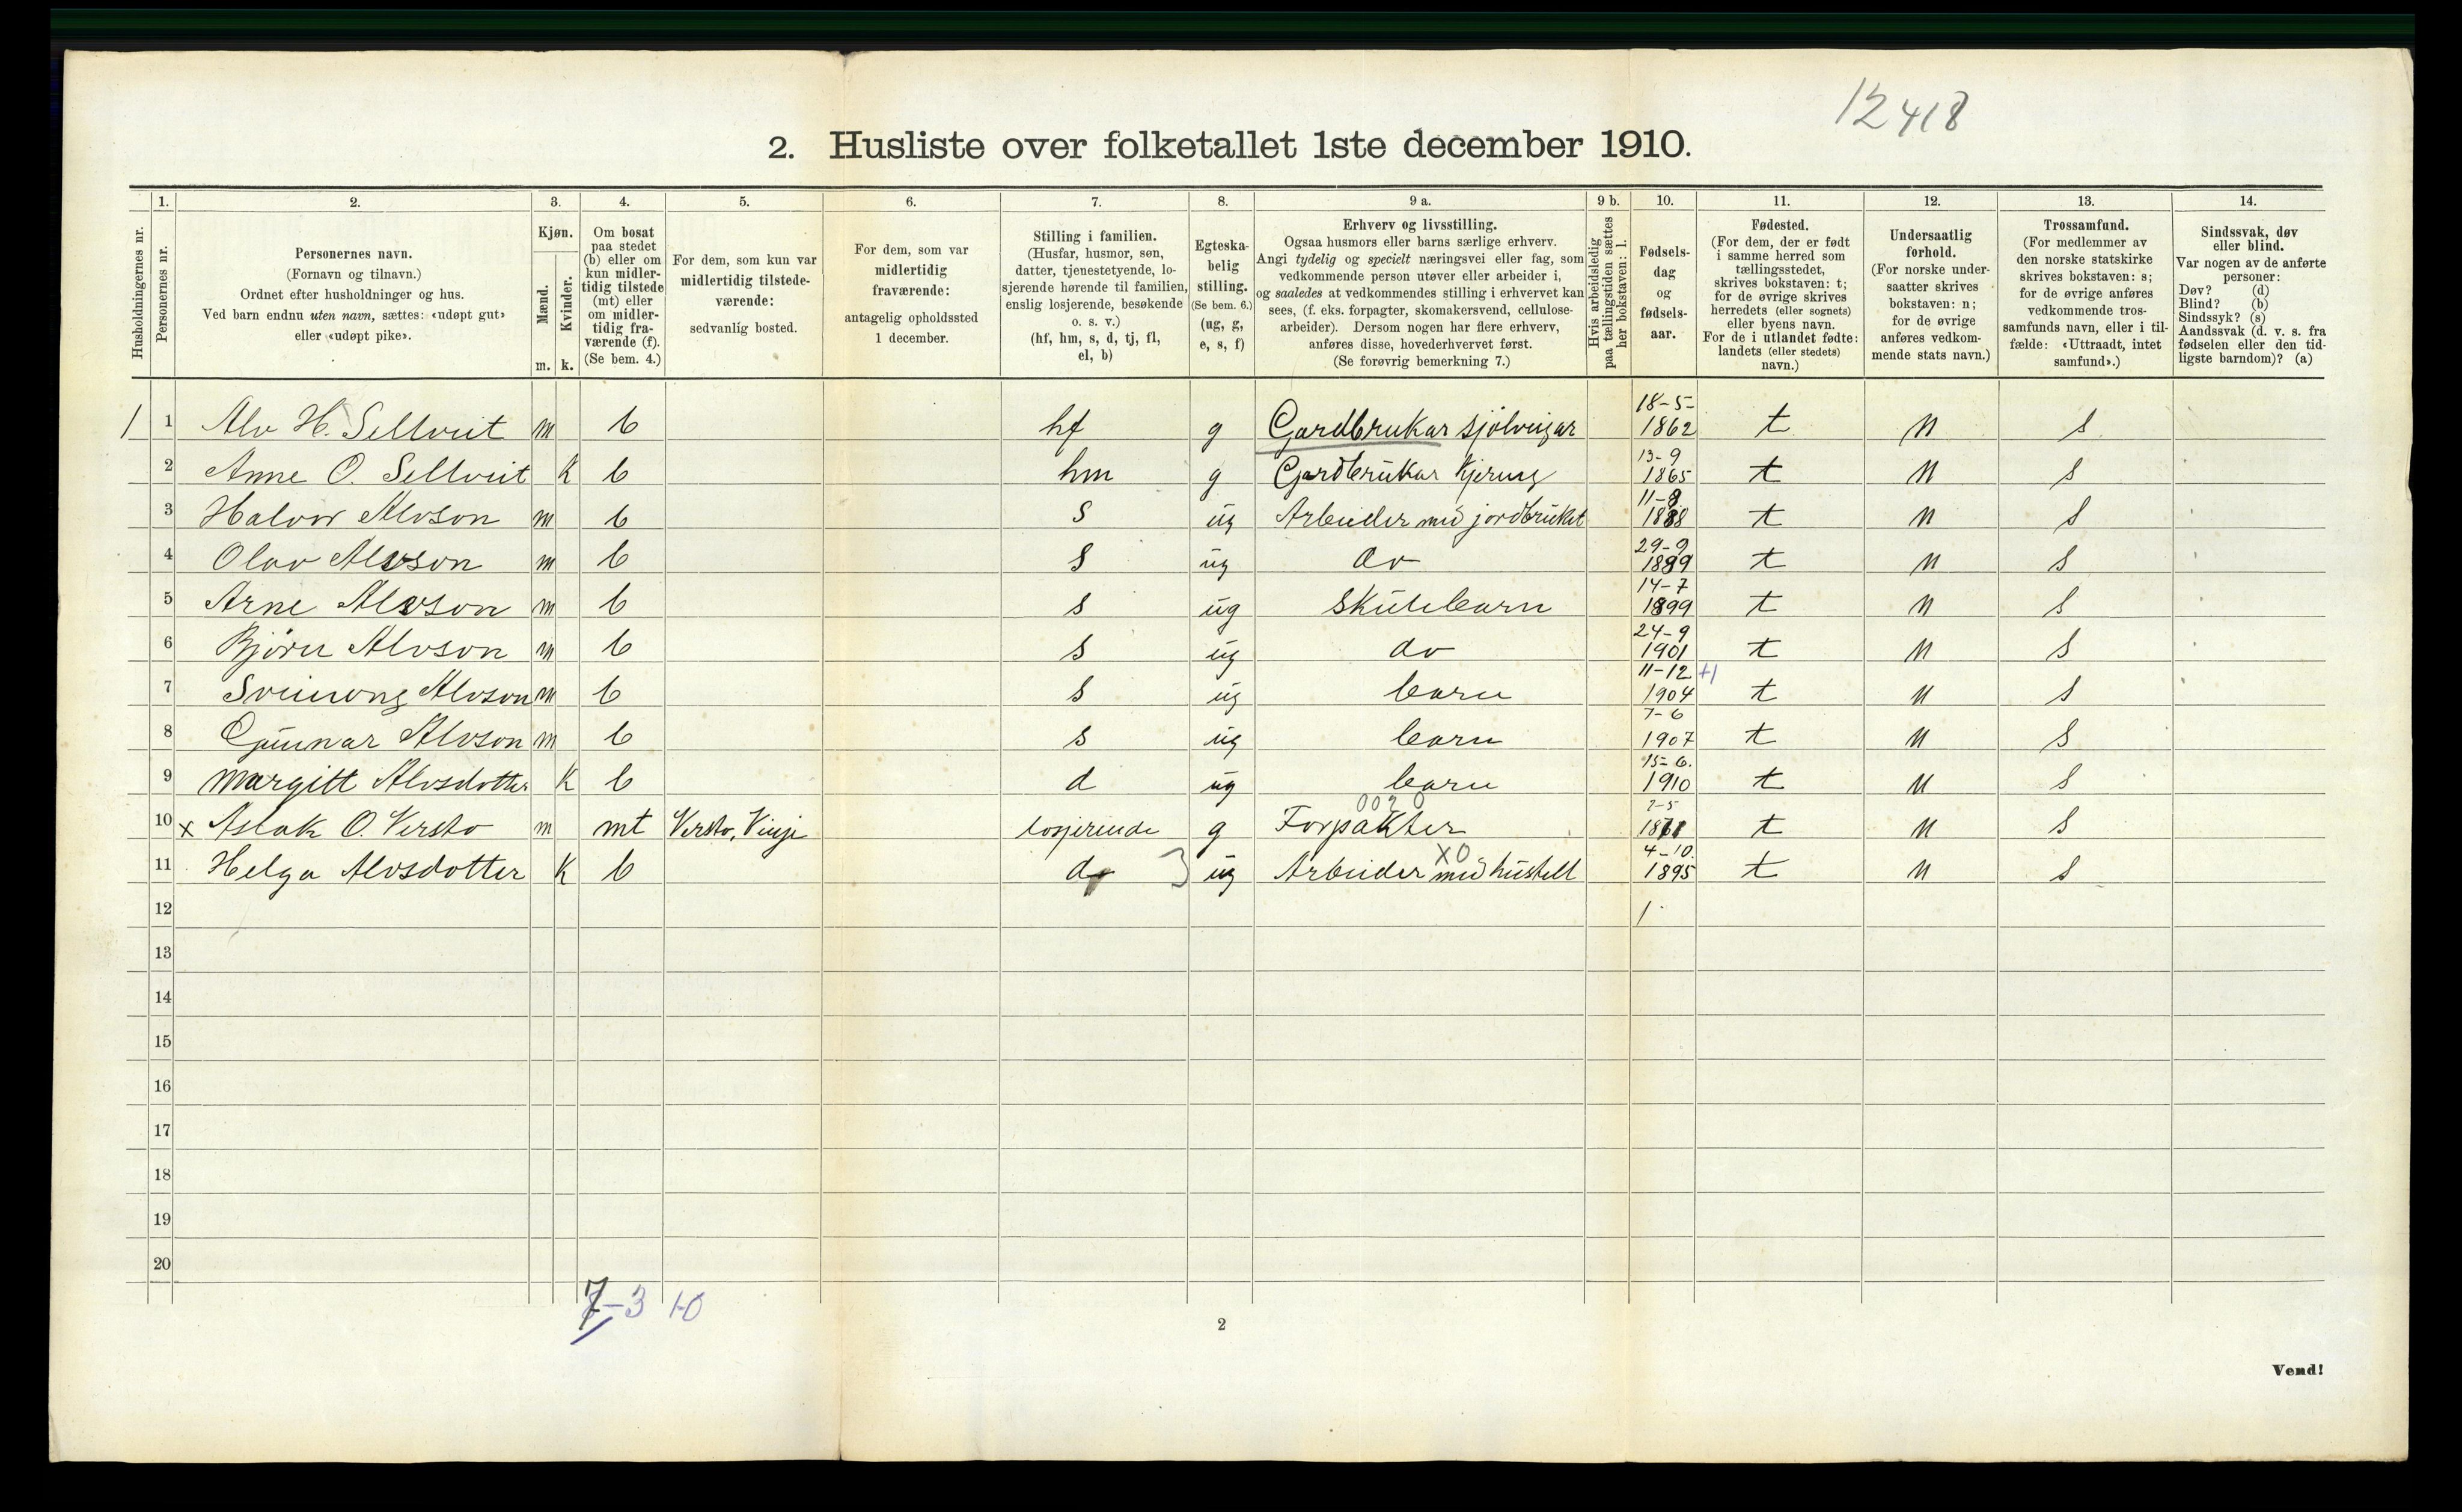 12418
2. Husliste over folketallet 1ste december 1910.
Husholdningernes nr.
1.
Personernes nr.
2.
Personernes navn.
(Fornavn og tilnavn.)
Ordnet efter husholdninger og hus.
Ved barn endnu uten navn, sættes: «udøpt gut»
eller «udøpt pike».
3.
Kjøn.
Mænd.
Kvinder.
m. k.
4.
Om bosat
paa stedet
(b) eller om
kun midler-
tidig tilstede
(mt) eller
om midler-
tidig fra-
værende (f).
(Se bem. 4.)
5.
For dem, som kun var
midlertidig tilstede-
værende:
sedvanlig bosted.
6.
For dem, som var
midlertidig
fraværende:
antagelig opholdssted
1 december.
7.
Stilling i familien.
(Husfar, husmor, søn,
datter, tjenestetyende, lo-
sjerende hørende til familien,
enslig losjerende, besøkende
o. s. v.)
(hf, hm, s, d, tj, fl,
el, b)
8.
Egteska-
belig
stilling.
(Se bem. 6.)
(ug, g,
e, s, f)
9 a.
Erhverv og livsstilling.
Ogsaa husmors eller barns særlige erhverv.
Angi tydelig og specielt næringsvei eller fag, som
vedkommende person utøver eller arbeider i,
og saaledes at vedkommendes stilling i erhvervet kan
sees, (f. eks. forpagter, skomakersvend, cellulose-
arbeider). Dersom nogen har flere erhverv,
anføres disse, hovederhvervet først.
(Se forøvrig bemerkning 7.)
9 b.
Hvis arbeidsledig
paa tællingstiden sættes
her bokstaven: l.
10.
Fødsels-
dag
og
fødsels-
aar.
11.
Fødested.
(For dem, der er født
i samme herred som
tællingsstedet,
skrives bokstaven: t;
for de øvrige skrives
herredets (eller sognets)
eller byens navn.
For de i utlandet fødte:
landets (eller stedets)
navn.)
12.
Undersaatlig
forhold.
(For norske under-
saatter skrives
bokstaven: n;
for de øvrige
anføres vedkom-
mende stats navn.)
13.
Trossamfund.
(For medlemmer av
den norske statskirke
skrives bokstaven: s;
for de øvrige anføres
vedkommende tros-
samfunds navn, eller i til-
fælde: «Uttraadt, intet
samfund».)
14.
Sindssvak, døv
eller blind.
Var nogen av de anførte
personer:
Døv? (d)
Blind? (b)
Sindssyk? (s)
Aandssvak (d. v. s. fra
fødselen eller den tid-
ligste barndom)? (a)
1 1 Alv H. Sellveit m b hf g Gardbrukar sjølveigar 18-5-1862 t n s
2 Anne O. Sellveit k b hm g Gardbrukar Kjering 13-9 1865 t n s
3 Halvor Alvson m b s ug Arbeider med jordbruket 11-8 1888 t n s
4 Olav Alvson m b s ug do 29-9 1889 t n s
5 Arne Alvson m b s ug Skulebarn 14-7 1899 t n s
6 Bjørn Alvson m b s ug do 24-9 1901 t n s
7 Sveinung Alvson m b s ug barn 11-12 1904 +1 t n s
8 Gunnar Alvson m b s ug barn 7-6 1907 t n s
9 Margitt Alvsdotter k b d ug barn 15-6. 1910 t n s
0020
10 x Aslak O. Versto m mt Versto, Vinje losjerende g Forpakter t n s
XO
11 Helga Alvsdotter k b d ug Arbeider med hustell 4-10. 1895 t n s
12 1
13
14
15
16
17
18
19
20
7-3 10
2
Vend!